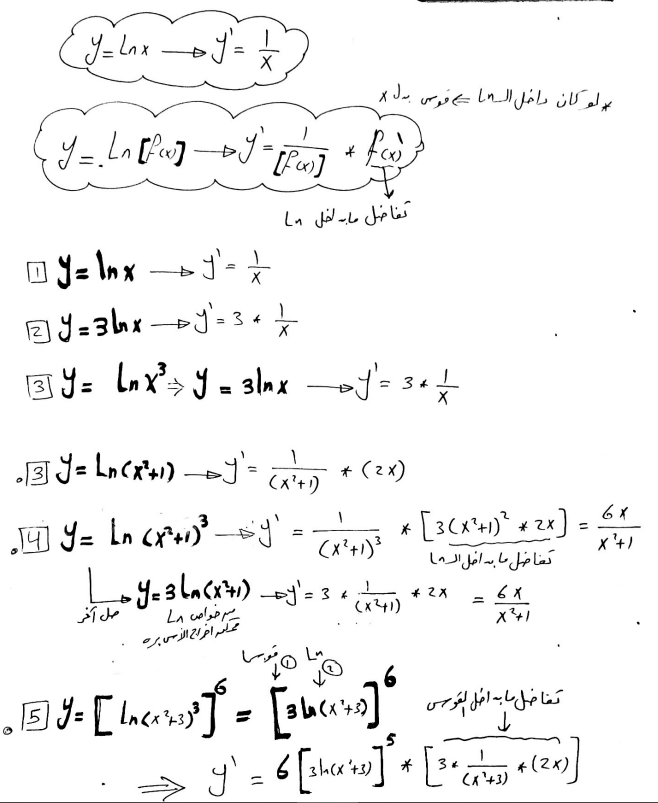 y = Ln x → y' = 1/x
* لو كان داخل الـ Ln ⇐ قوس بدل x
y = . Ln [f(x)] → y' = 1/[f(x)] * f(x)'
تفاضل ما بداخل Ln
[1] y = ln x → y' = 1/x
[2] y = 3 ln x → y' = 3 * 1/x
[3] y = Ln x³ ⇒ y = 3 ln x → y' = 3 * 1/x
. [3] y = Ln (x²+1) → y' = 1/(x²+1) * (2x)
. [4] y = Ln (x²+1)³ → y' = 1/(x²+1)³ * [3(x²+1)² * 2x] = 6x/(x²+1)
تفاضل ما بداخل الـ Ln
حل آخر → y = 3 Ln (x²+1) → y' = 3 * 1/(x²+1) * 2x = 6x/(x²+1)
من خواص Ln
ممكن اخراج الأس بره
قوس ① Ln ②
. [5] y = [Ln (x²+3)³]⁶ = [3 ln (x²+3)]⁶
تفاضل ما بداخل القوس
⇒ y' = 6 [3 ln (x²+3)]⁵ * [3 * 1/(x²+3) * (2x)]